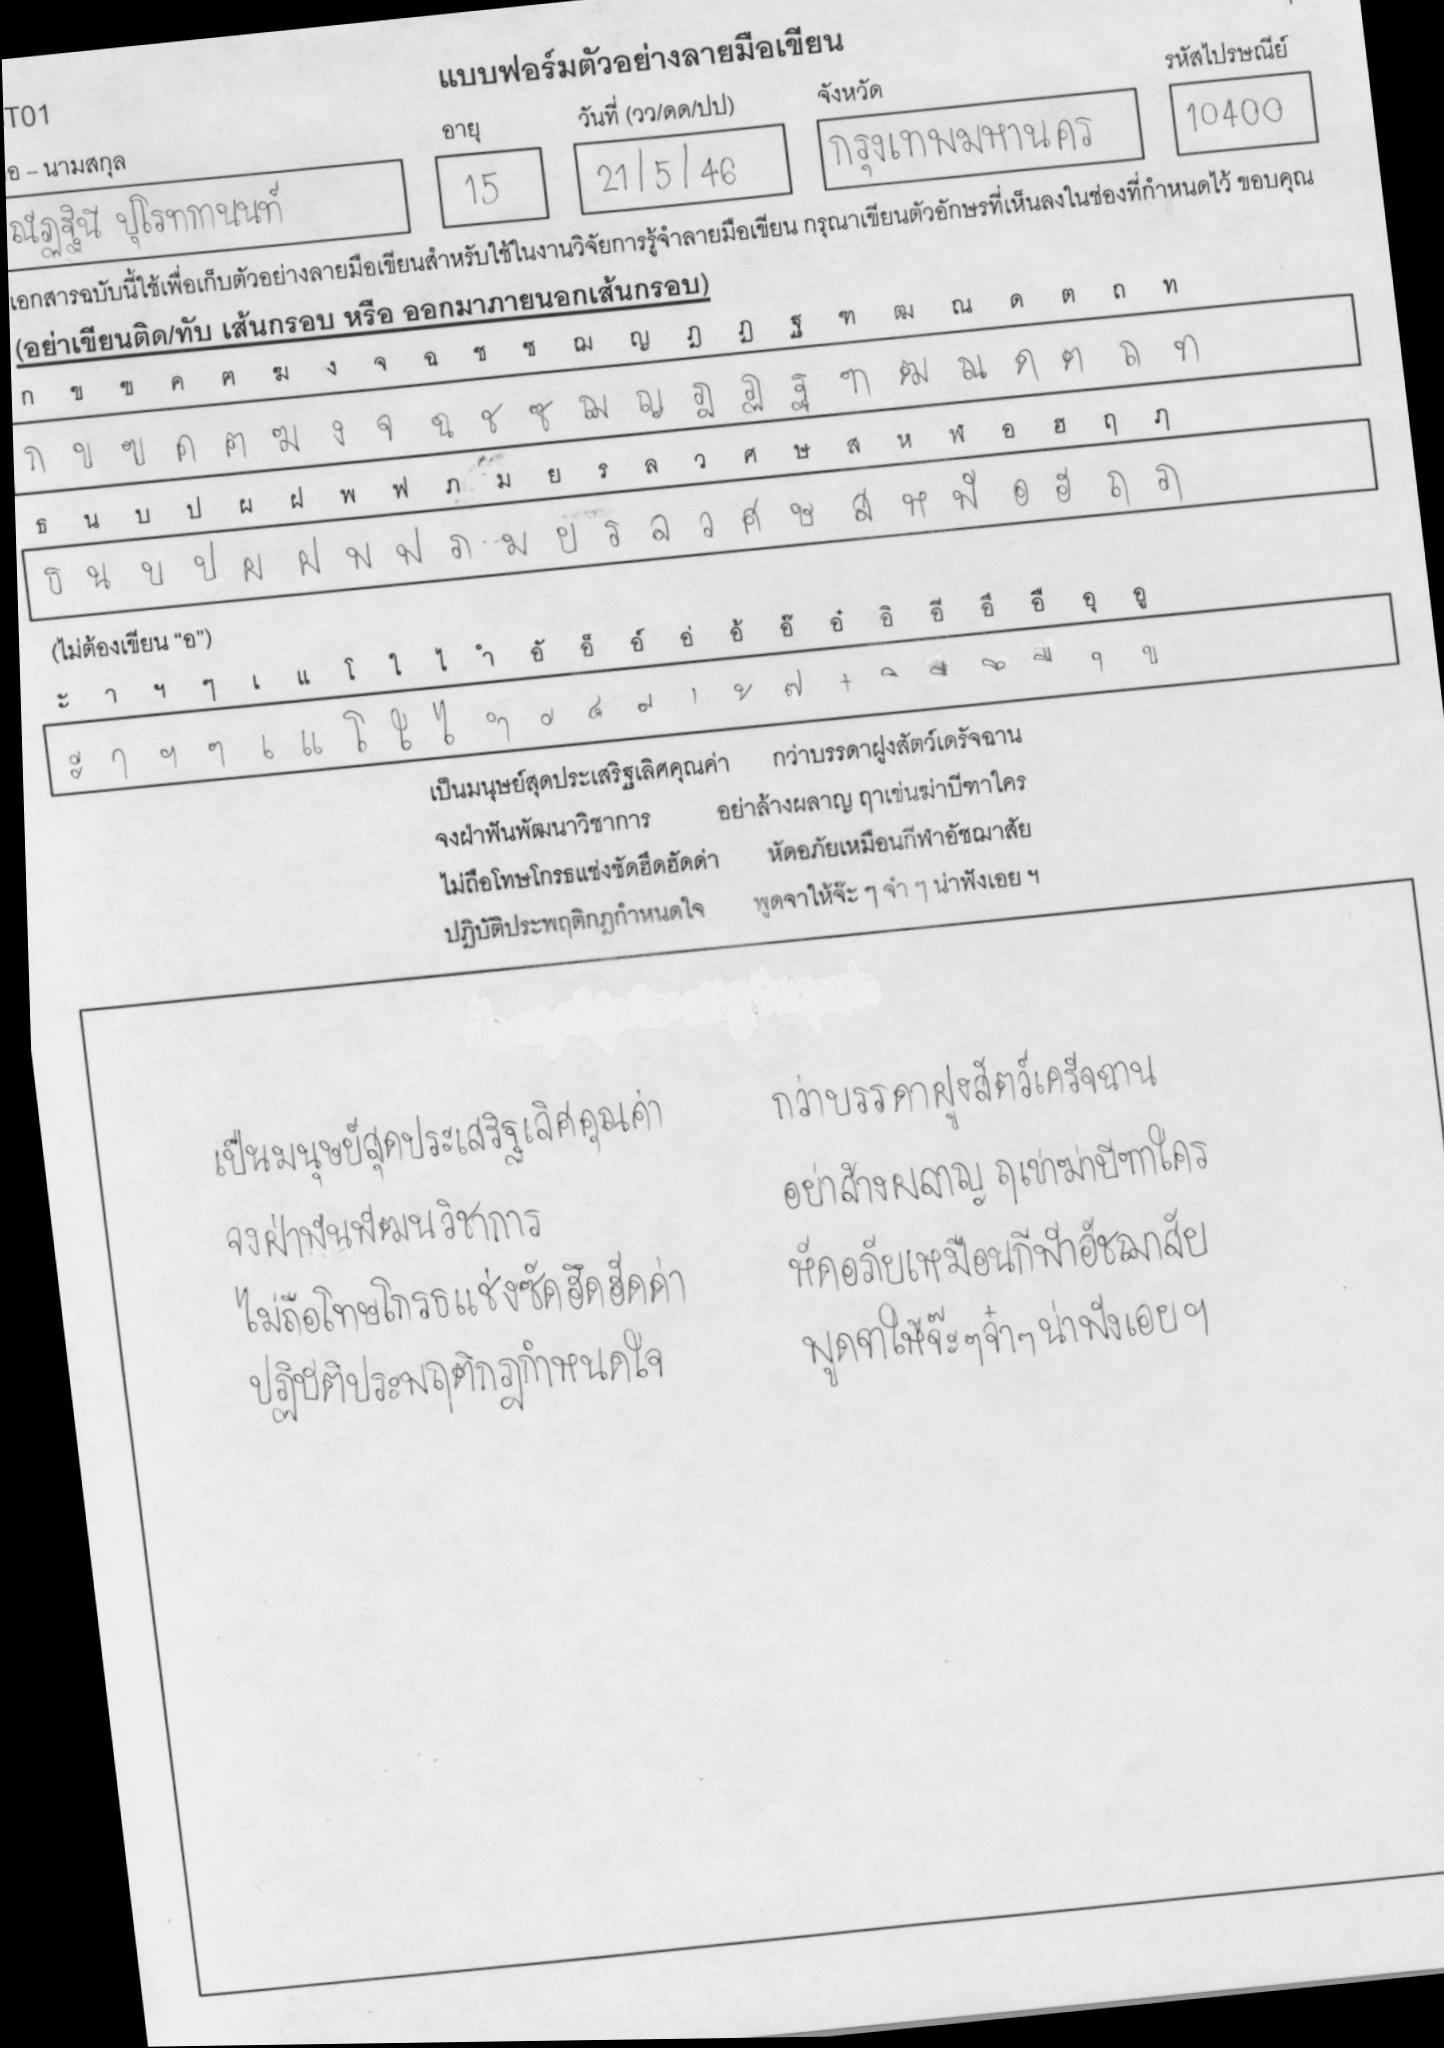 แบบฟอร์มตัวอย่างลายมือเขียน
T01
อ – นามสกุล อายุ วันที่ (วว/ดด/ปป) จังหวัด รหัสไปรษณีย์
15 21/5/46 กรุงเทพมหานคร 10400
เอกสารฉบับนี้ใช้เพื่อเก็บตัวอย่างลายมือเขียนสำหรับใช้ในงานวิจัยการรู้จำลายมือเขียน กรุณาเขียนตัวอักษรที่เห็นลงในช่องที่กำหนดไว้ ขอบคุณ
(อย่าเขียนติด/ทับ เส้นกรอบ หรือ ออกมาภายนอกเส้นกรอบ)
ก ข ฃ ค ฅ ฆ ง จ ฉ ช ซ ฌ ญ ฎ ฏ ฐ ฑ ฒ ณ ด ต ถ ท
ก ข ฃ ค ฅ ฆ ง จ ฉ ช ซ ฌ ญ ฎ ฏ ฐ ฑ ฒ ณ ด ต ถ ท
ธ น บ ป ผ ฝ พ ฟ ภ ม ย ร ล ว ศ ษ ส ห ฬ อ ฮ ฤ ฦ
ธ น บ ป ผ ฝ พ ฟ ภ ม ย ร ล ว ศ ษ ส ห ฬ อ ฮ ฤ ฦ
(ไม่ต้องเขียน “อ”)
ะ า ฯ ๆ เ แ โ ใ ไ ำ อั อ็ อ์ อ่ อ้ อ๊ อ๋ อิ อี อึ อื อุ อู
ะ า ฯ ๆ เ แ โ ใ ไ ำ ั ็ ์ ่ ้ ๊ ๋ ิ ี ึ ื ุ ู
เป็นมนุษย์สุดประเสริฐเลิศคุณค่า กว่าบรรดาฝูงสัตว์เดรัจฉาน
จงฝ่าฟันพัฒนาวิชาการ อย่าล้างผลาญ ฤาเข่นฆ่าบีฑาใคร
ไม่ถือโทษโกรธแช่งซัดฮึดฮัดด่า หัดอภัยเหมือนกีฬาอัชฌาสัย
ปฏิบัติประพฤติกฎกำหนดใจ พูดจาให้จ๊ะ ๆ จ๋า ๆ น่าฟังเอย ฯ
เป็นมนุษย์สุดประเสริฐเลิศคุณค่า กว่าบรรดาฝูงสัตว์เดรัจฉาน
จงฝ่าฟันพัฒนวิชาการ อย่าล้างผลาญ ฤเข่าฆ่าบีฑาใคร
ไม่ถือโทษโกรธแช่งซัดฮึดฮัดด่า หัดอภัยเหมือนกีฬาอัชฌาสัย
ปฏิบัติประพฤติกฎกำหนดใจ พูดจาให้จ๊ะๆจ๋าๆ น่าฟังเอยฯ